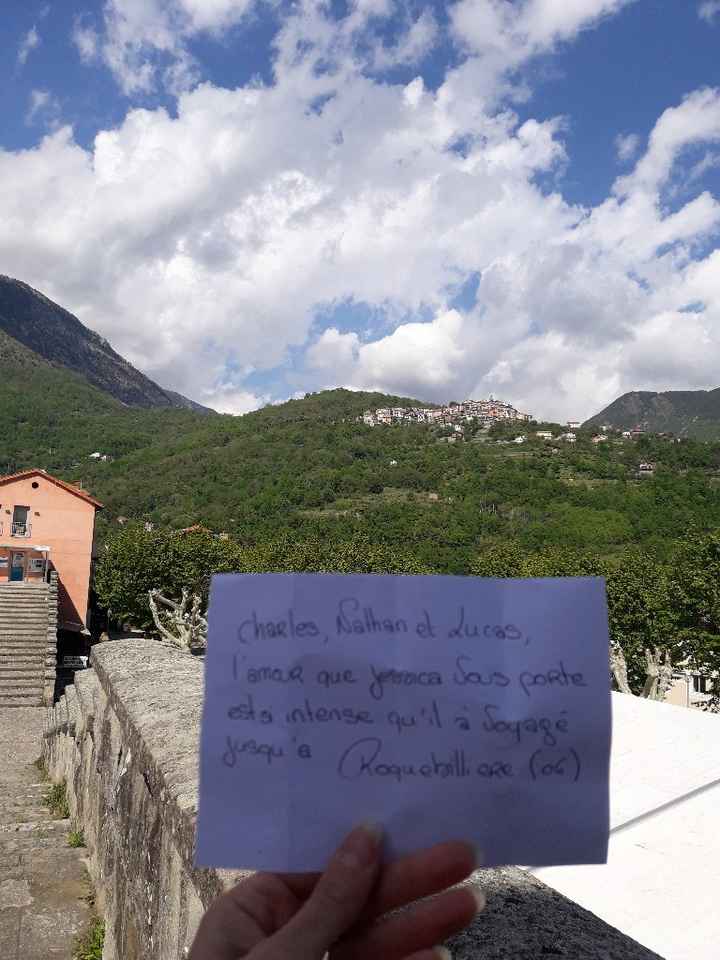 Charles, Nathan et Lucas,
l'amour que Jessica vous porte
est si intense qu'il à voyagé
jusqu'a Roquebilliere (06)